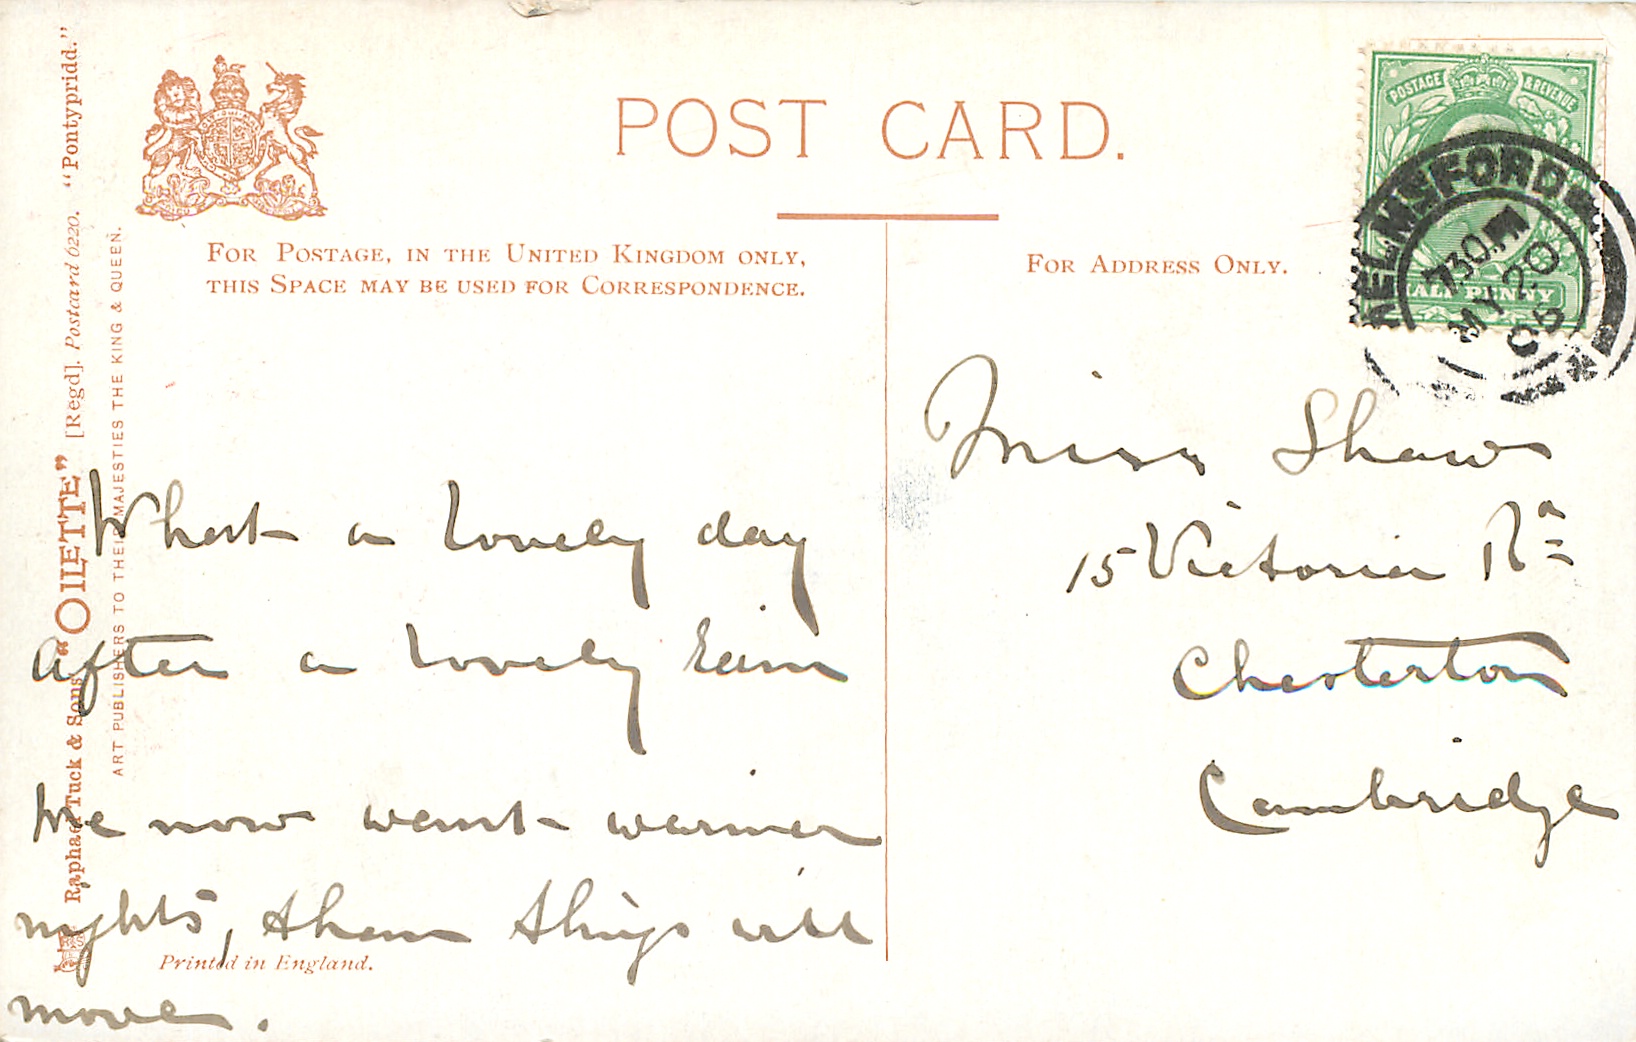 POST CARD.
FOR POSTAGE, IN THE UNITED KINGDOM ONLY,
THIS SPACE MAY BE USED FOR CORRESPONDENCE.
FOR ADDRESS ONLY.
POSTAGE & REVENUE
HALF PENNY
CHELMSFORD
7.30 PM
MY 20
Raphael Tuck & Sons' "OILETTE" [Regd]. Postcard 6220. "Pontypridd."
ART PUBLISHERS TO THEIR MAJESTIES THE KING & QUEEN.
What a lovely day
after a lovely rain
We now want warmer
nights, then things will
move.
Printed in England.
Miss Shaw
15 Victoria Rd
Chesterton
Cambridge